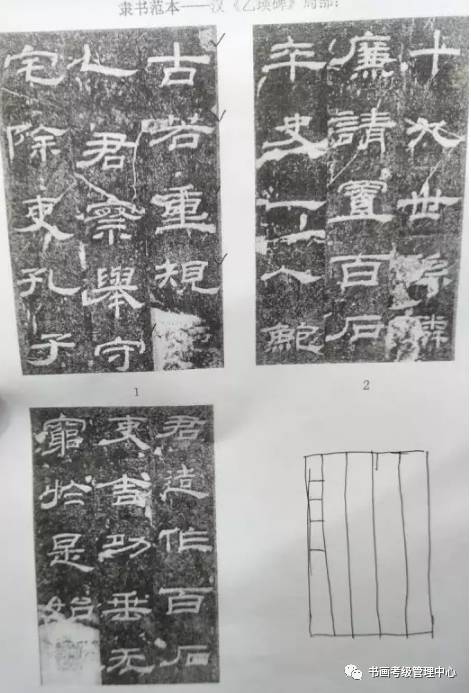 隶书范本——汉《乙瑛碑》局部:
古若重規
乙君察舉守
宅除吏孔子
1
十九世孫麟
廉請置百石
卒史一人鮑
2
君造作百石
吏舍功垂无
窮於是始
书画考级管理中心